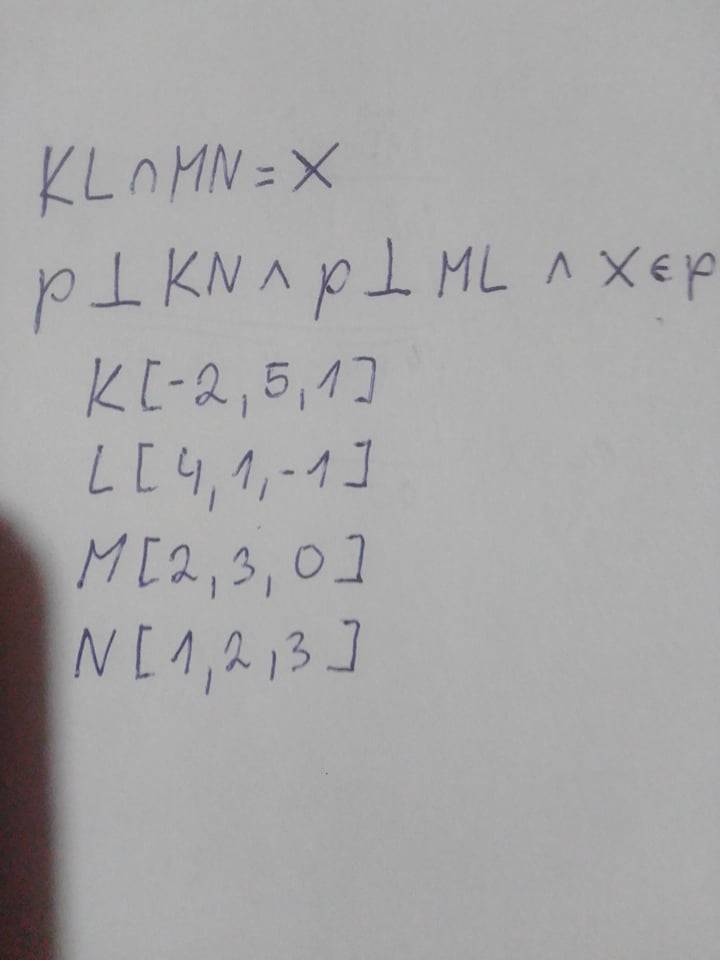 KL∩MN=X
p⊥KN∧p⊥ML∧X∈p
K[-2,5,1]
L[4,1,-1]
M[2,3,0]
N[1,2,3]